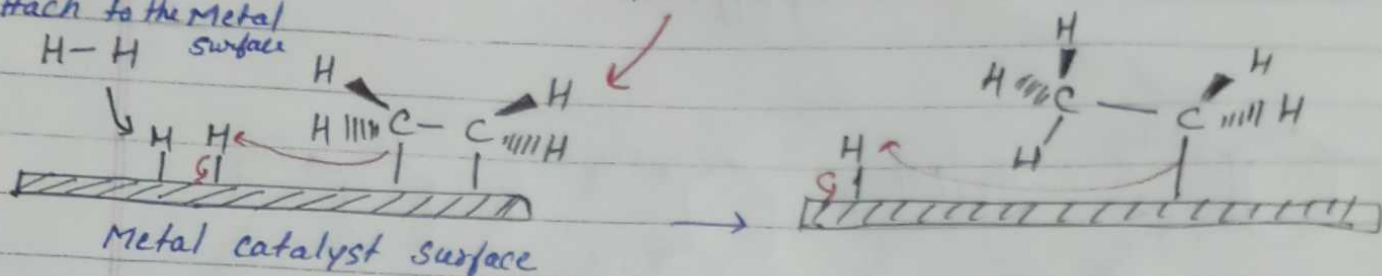 ttach to the Metal
surface
H-H
H H
H H
H C-C H
Metal catalyst surface
H
H C — C H
H H
H